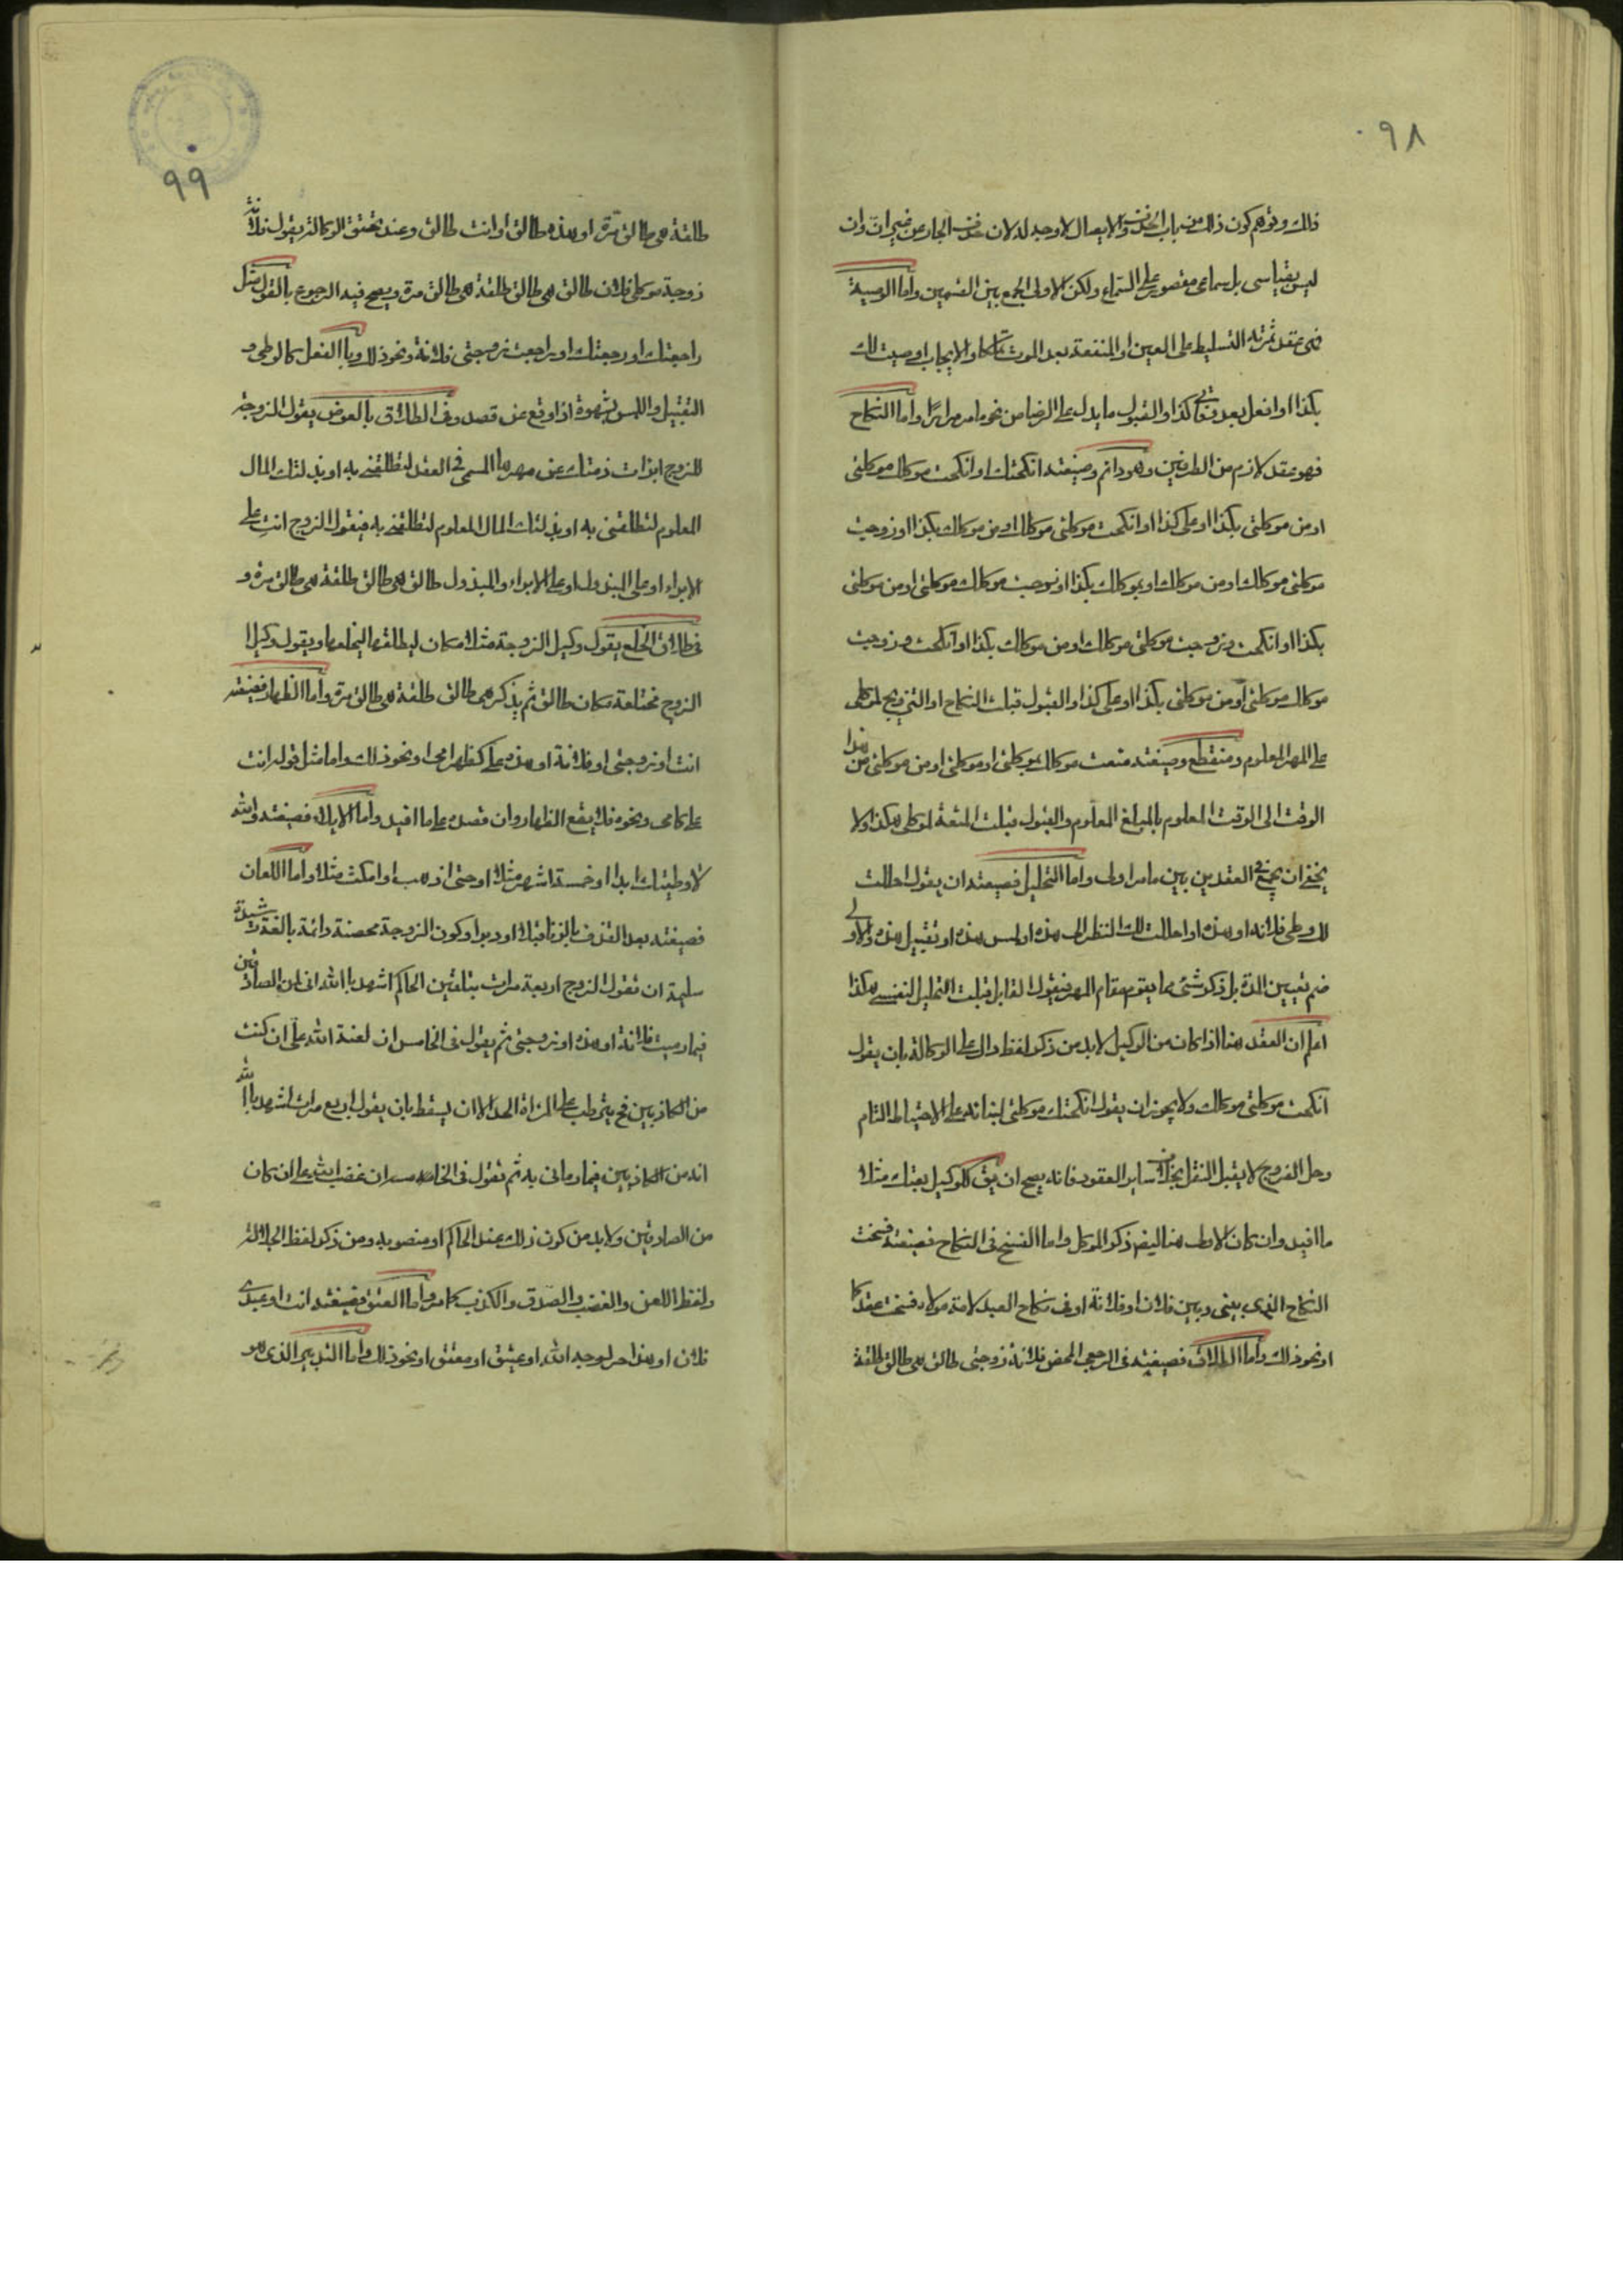 ٩٨
ذلك وتوهم كون ذلك من باب الحذف والايصال لا وجه له لان حذف الجار عن غير ان وان
ليس بقياسى بل سماعى مقصور على السماع ولكن الاولى الجمع بين القسمين واما الوصية
فهى عقد ثمرته التسليط على العين او المنفعة بعد الموت والايجاب اوصيت لك
بكذا او افعل بعد وفاتى كذا والقبول ما يدل على الرضا من نحو ما مر مرارا واما النكاح
فهو عقد لازم من الطرفين وهو دائم وصيغته انكحتك او انكحت موكلك موكلتى
او من موكلتى بكذا او على كذا او انكحت موكلتى موكلك او من موكلك بكذا او زوجت
موكلتى موكلك او من موكلك او بموكلك بكذا او زوجت موكلك موكلتى او من موكلتى
بكذا او انكحت وزوجت موكلتى موكلك او من موكلك بكذا او انكحت وزوجت
موكلك موكلتى او من موكلتى بكذا او على كذا والقبول قبلت النكاح او التزويج لموكلى
على المهر المعلوم ومنقطع وصيغته متعت موكلك بموكلتى او موكلتى او من موكلتى من هذا
الوقت الى الوقت المعلوم بالمبلغ المعلوم والقبول قبلت المتعة لموكلى هكذا ولا
يخفى ان يجمع فى العقدين بين ما مر اولى واما التحليل فصيغته ان يقول احللت
لك وطى فلانه او هذه او احللت لك النظر الى هذه او لمس هذه او تقبيل هذه والاولى
ضم تعيين المدة بل ذكر شئ مما يقوم مقام المهر فيقول القابل قبلت التحليل لنفسى هكذا
اعلم ان العقد هنا اذا كان من الوكيل لابد من ذكر لفظ دال على الوكالة بان يقول
انكحت موكلتى موكلك ولا يجوز ان يقول انكحتك موكلتى لبنائه على الاحتياط التام
وحل الفروج لا يقبل النقل بخلاف ساير العقود فانه يصح ان يق للوكيل بعتك مثلا
ما افيد وان كان الاحوط هنا ايضا ذكر الموكل واما الفسخ فى النكاح فصيغته فسخت
النكاح الذى بينى وبين فلان او فلانة او فى نكاح العبد لامة مولاه فسخت عقدكما
او نحو ذلك واما الطلاق فصيغته فى الرجعى المحض فلانة زوجتى طالق هى طالق طلقة
٩٩
طلقة هى طالق مرة او هذه طالق او انت طالق وعند تحقق الوكالة يقول فلانة
زوجة موكلى فلان طالق هى طالق طلقة هى طالق مرة ويصح فيه الرجوع بالقول مثل
راجعتك او رجعتك او راجعت زوجتى فلانة ونحو ذلك وبالفعل كالوطى و
التقبيل واللمس بشهوة اذا وقع عن قصد وفى الطلاق بالعوض يقول الزوجة
للزوج ابرات ذمتك عن مهرها المسمى فى العقد لتطلقنى به او بذلتك المال
المعلوم لتطلقنى به او بذلتك المال المعلوم لتطلقنى به فيقول الزوج انت على
الابراء او على المبذول او على الابراء والمبذول طالق هى طالق طلقة هى طالق مرة و
فى طلاق الخلع يقول وكيل الزوجة مثلا مكان ليطلقها ليخلعها ويقول وكيل
الزوج مختلعة مكان طالق ثم يذكر هى طالق طلقة هى طالق مرة واما الظهار فصيغته
انت او زوجتى او فلانة او هذه على كظهر امى او نحو ذلك واما مثل قوله انت
على كامى ونحوه فلا يقع الظهار وان قصده على ما افيد واما الايلاء فصيغته والله
لا وطيتك ابدا او خمسة اشهر مثلا او حتى اذهب او امكث مثلا واما اللعان
فصيغته بعد القذف بالزنا قبلا او دبرا وكون الزوجة محصنة دائمة بالغة رشيدة
سليمة ان يقول الزوج اربعة مرات بتلقين الحاكم اشهد بالله انى لمن الصادقين
فيما رميت فلانة او هذه او زوجتى ثم يقول فى الخامس ان لعنة الله على ان كنت
من الكاذبين فح يترتب على المراة الحد الا ان يسقط بان يقول اربع مرات اشهد بالله
انه من الكاذبين فيما رمانى به ثم تقول فى الخامسه ان غضب الله على ان كان
من الصادقين ولابد من كون ذلك عند الحاكم او منصوبه ومن ذكر لفظ الجلالة
ولفظ اللعن والغضب والصدق والكذب كما مر واما العتق فصيغته انت او عبدى
فلان او هذا حر لوجه الله او عتيق او معتق او نحو ذلك واما التدبير الذى هو